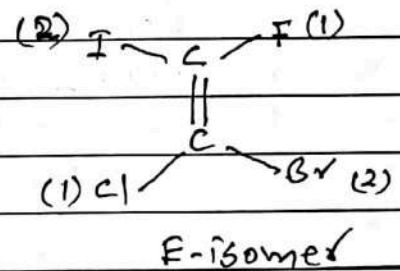 (2) I C F (1)
C
(1) Cl Br (2)
E-isomer